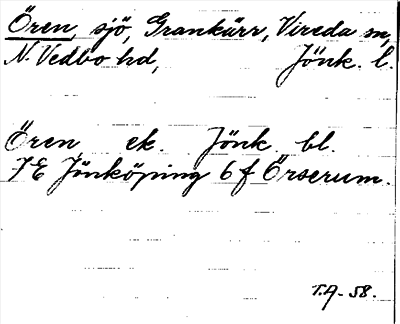 Ören, sjö, Grankärr, Vireda sn,
N. Vedbo hd, Jönk. l.
Ören ek. Jönk. bl.
7E Jönköping 6f Örserum.
T.A. -58.